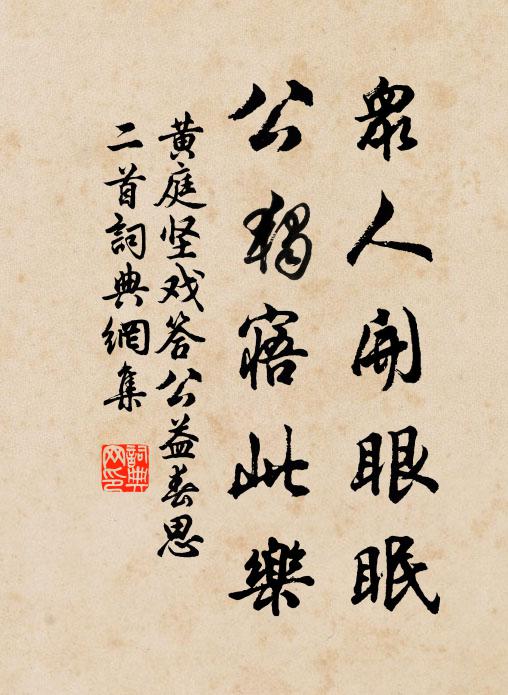 眾人開眼眠
公獨寤此樂
黄庭坚戏答公益春思
二首詞典網集
詞典网印